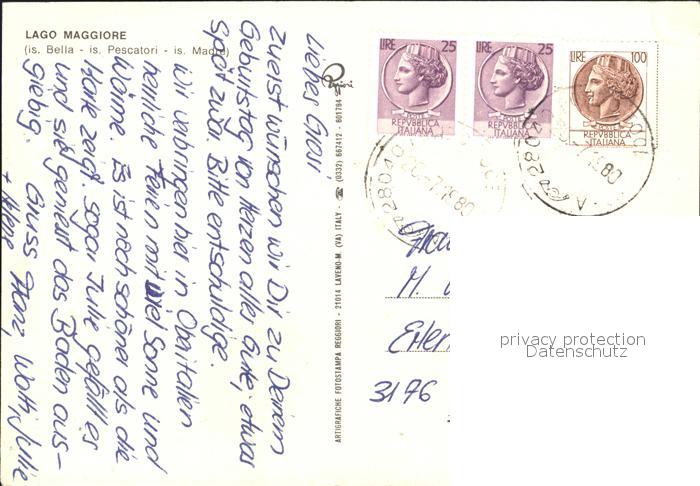 LAGO MAGGIORE
(is. Bella - is. Pescatori - is. Madre)
Liebes Grosi,
Zuerst wünschen wir Dir zu Deinem
Geburtstag von Herzen alles Gute, etwas
spät zwar. Bitte entschuldige.
Wir verbringen hier in Oberitalien
herrliche Ferien mit viel Sonne und
Wärme. Es ist noch schöner als die
Karte zeigt, sogar Julie gefällt es
und sie geniesst das Baden aus-
giebig. Gruss Franz, Walti, Julie
ARTIGRAFICHE FOTOSTAMPA REGGIORI - 21014 LAVENO-M. (VA) ITALY - ☎ (0332) 667412 - 601794
LIRE 25
REPVBBLICA
ITALIANA
LIRE 25
REPVBBLICA
ITALIANA
LIRE 100
REPVBBLICA
ITALIANA
28040
80
28040
80
M.
3176
privacy protection
Datenschutz